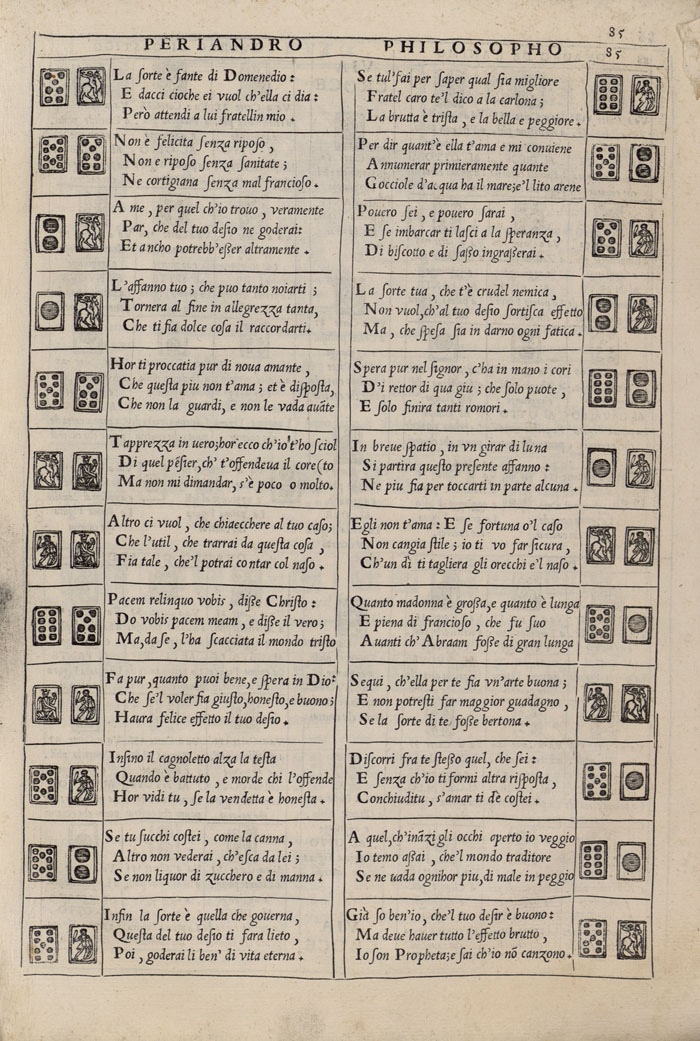 85
PERIANDRO PHILOSOPHO 85
La sorte è fante di Domenedio :
E dacci cioche ei vuol ch'ella ci dia :
Però attendi a lui fratellin mio .
Non è felicita senza riposo ,
Non e riposo senza sanitate ;
Ne cortigiana senza mal francioso .
A me , per quel ch'io trouo , veramente
Par, che del tuo desio ne goderai:
Et ancho potrebb'esser altramente .
L'affanno tuo ; che puo tanto noiarti ;
Tornera al fine in allegrezza tanta,
Che ti fia dolce cosa il raccordarti.
Hor ti proccatia pur di noua amante ,
Che questa piu non t'ama ; et è disposta,
Che non la guardi, e non le vada auãte
Tapprezza in uero;hor ecco ch'io t'ho sciol
Di quel pẽsier,ch' t'offendeua il core(to
Ma non mi dimandar, s'è poco o molto.
Altro ci vuol , che chiaecchere al tuo caso;
Che l'util , che trarrai da questa cosa ,
Fia tale , che'l potrai contar col naso .
Pacem relinquo vobis , disse Christo :
Do vobis pacem meam , e disse il vero ;
Ma,da se , l'ha scacciata il mondo tristo
Fa pur , quanto puoi bene,e spera in Dio:
Che se'l voler fia giusto,honesto,e buono ;
Haura felice effetto il tuo desio .
Insino il cagnoletto alza la testa
Quando è battuto , e morde chi l'offende
Hor vidi tu , se la vendetta è honesta .
Se tu succhi costei , come la canna ,
Altro non vederai , ch'esca da lei ;
Se non liquor di zucchero e di manna .
Infin la sorte è quella che gouerna,
Questa del tuo desio ti fara lieto ,
Poi , goderai li ben' di vita eterna .
Se tul'fai per saper qual sia migliore
Fratel caro te'l dico a la carlona ;
La brutta è trista , e la bella e peggiore .
Per dir quant'è ella t'ama e mi conuiene
Annumerar primieramente quante
Gocciole d'acqua ha il mare;e'l lito arene
Pouero sei , e pouero sarai ,
E se imbarcar ti lasci a la speranza ,
Di biscotto e di sasso ingrasserai .
La sorte tua , che t'è crudel nemica ,
Non vuol,ch'al tuo desio sortisca effetto
Ma , che spesa sia in darno ogni fatica .
Spera pur nel signor , c'ha in mano i cori
D'i rettor di qua giu ; che solo puote ,
E solo finira tanti romori .
In breue spatio , in vn girar di luna
Si partira questo presente affanno :
Ne piu fia per toccarti in parte alcuna .
Egli non t'ama : E se fortuna o'l caso
Non cangia stile ; io ti vo far sicura ,
Ch'un dì ti tagliera gli orecchi e'l naso .
Quanto madonna è grossa,e quanto è lunga
E piena di francioso , che fu suo
Auanti ch'Abraam fosse di gran lunga
Sequi , ch'ella per te fia vn'arte buona ;
E non potresti far maggior guadagno ,
Se la sorte di te fosse bertona .
Discorri fra te stesso quel, che sei :
E senza ch'io ti formi altra risposta,
Conchiuditu , s'amar ti de costei .
A quel,ch'inãzi gli occhi aperto io veggio
Io temo assai , che'l mondo traditore
Se ne uada ognihor piu,di male in peggio
Già so ben'io, che'l tuo desir è buono :
Ma deue hauer tutto l'effetto brutto ,
Io son Propheta;e sai ch'io nõ canzono .